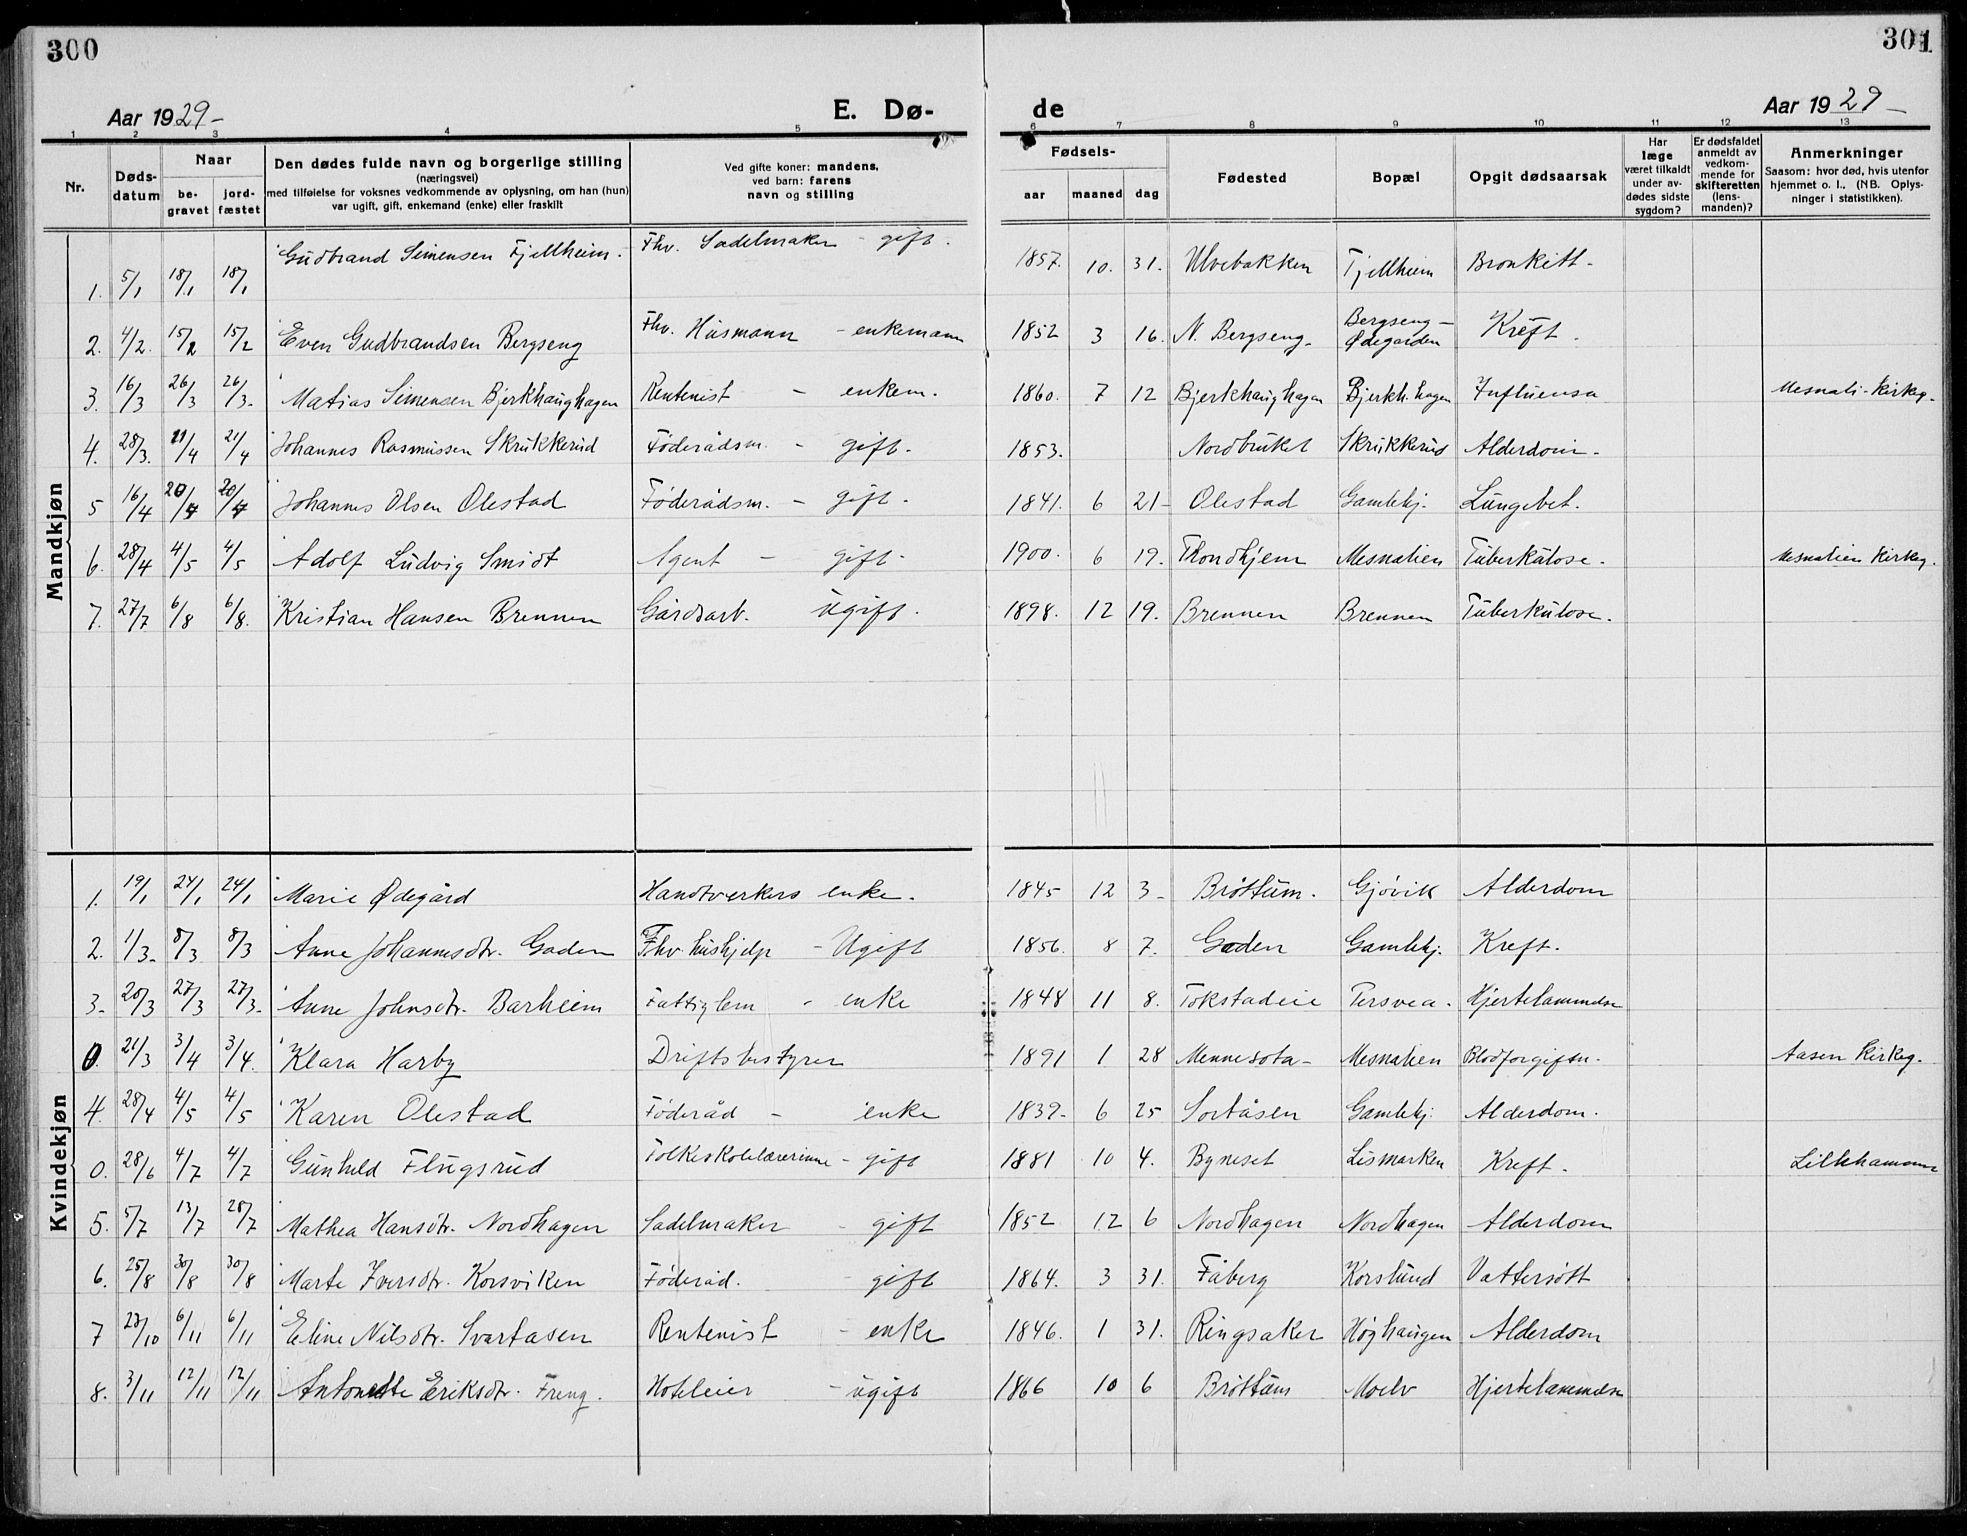 300
301
Aar 1929-
E. Dø-
de
Aar 1929-
1 2 3 4 5 6 7 8 9 10 11 12 13
Nr.
Døds-
datum
Naar
be-
gravet
jord-
fæstet
Den dødes fulde navn og borgerlige stilling
(næringsvei)
med tilføielse for voksnes vedkommende av oplysning, om han (hun)
var ugift, gift, enkemand (enke) eller fraskilt
Ved gifte koner: mandens,
ved barn: farens
navn og stilling
Fødsels-
aar
maaned
dag
Fødested
Bopæl
Opgit dødsaarsak
Har
læge
været tilkaldt
under av-
dødes sidste
sygdom?
Er dødsfaldet
anmeldt av
vedkom-
mende for
skifteretten
(lens-
manden)?
Anmerkninger
Saasom: hvor død, hvis utenfor
hjemmet o. l., (NB. Oplys-
ninger i statistikken).
Mandkjøn
1. 5/1 18/1 18/1 Gudbrand Simensen Fjellheim. Fhv. Sadelmaker - gift. 1857. 10. 31. Ulvebakken Fjellheim Bronkitt-
2. 4/2. 15/2 15/2 Even Gudbrandsen Bergseng Fhv. Husmann - enkemann 1852 3 16. N. Bergseng. Bergseng-
Ødegården Kreft.
3. 16/3 26/3 26/3. Matias Simensen Bjerkhaughagen Rentenist - enkem. 1860. 7 12 Bjerkhaughagen Bjerkh.hagen Influensa Mesnali-Kirkeg.
4. 28/3. 21/4 21/4 Johannes Rasmussen Skrukkerud Føderådsm. - gift. 1853. Nordbruket Skrukkerud Alderdom.
5 16/4 20/4 20/4 Johannes Olsen Olestad Føderådsm. - gift. 1841. 6 21- Olestad Gamlekj. Lungebet.
6. 28/4 4/5 4/5 Adolf Ludvig Smidt Agent - gift. 1900. 6 19. Trondhjem Mesnalien Tuberkulose. Mesnalien Kirkeg.
7. 27/7 6/8 6/8. Kristian Hansen Brennen Gårdsarb. ugift. 1898. 12 19. Brennen Brennen Tuberkulose.
Kvindekjøn
1. 19/1 24/1 24/1 Marie Ødegård Handtverkers enke. 1845 12 3- Brøttum. Gjøvik Alderdom
2. 1/3. 8/3 8/3 Anne Johannesdtr. Gaden Fhv. hushjelp - Ugift 1856. 8 7. Gaden Gamlekj. Kreft.
3. 20/3 27/3 27/3. Anne Johnsdtr. Barheim Fattiglem - enke 1848 11 8. Tokstadeie Tersvea. Hjertelammelse
0. 21/3 3/4 3/4. Klara Harby Driftsbestyrer 1891 1 28 Mennesota- Mesnalien Blodforgiftn. Aasen Kirkeg.
4. 28/4 4/5 4/5 Karen Olestad Føderåd - enke 1839- 6 25 Sortåsen Gamlekj. Alderdom.
0. 28/6 4/7 4/7 Gunhild Flugsrud Folkeskolelærerinne - gift 1881 10 4. Byneset Lismarken Kreft. Lillehammer
5. 5/7 13/7 28/7 Mathea Hansdtr. Nordhagen Sadelmaker - gift 1852 12 6 Nordhagen Nordhagen Alderdom
6. 25/8 30/8 30/8 Marte Iversdtr. Korsviken Føderåd. - gift 1864. 3 31. Fåberg Korslund Vattersott
7 29/10 6/11 6/11 Eline Nilsdtr. Svartasen Rentenist - enke 1846. 1 31. Ringsaker Høghaugen Alderdom
8. 3/11 12/11 12/11 Antonette Eriksdtr. Freng. Hoteleier - ugift 1866 10 6 Brøttum Moelv Hjertelammelse